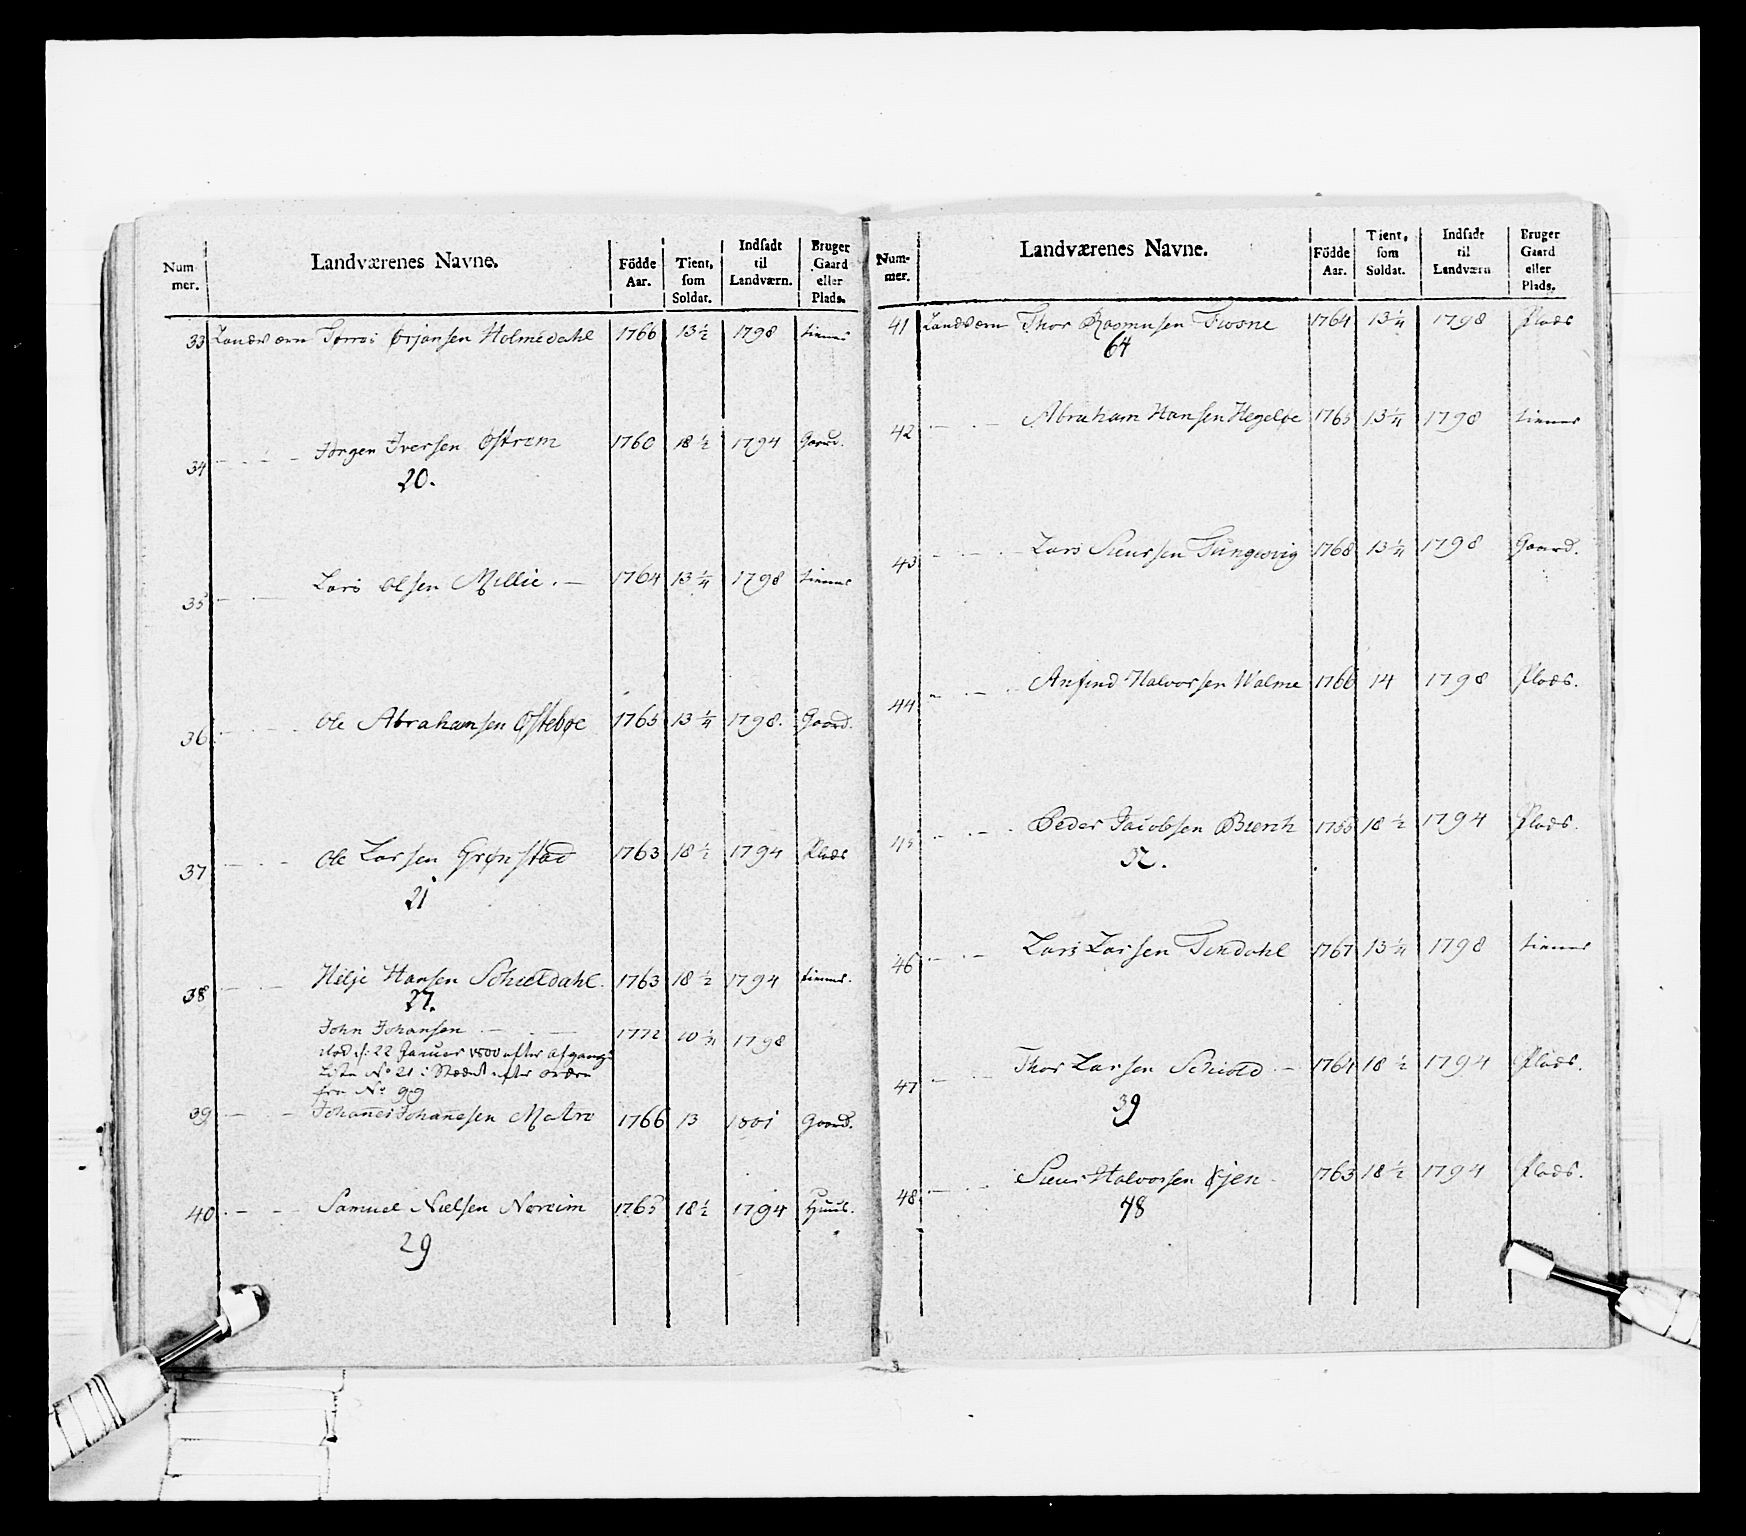 Num-
mer.
Landværenes Navne.
Födde
Aar.
Tient,
som
Soldat.
Indsadt
til
Landværn.
Bruger
Gaard
eller
Plads.
33 Landværn Ørjansen Holmedahl 1766 13 ½ 1798 tiener
34 Jørgen Iversen Østrem 1760 18 ½ 1794 Gaard.
20.
35 Lars Olsen Millie. 1764 13 ¼ 1798 tiener
36 Ole Abrahamsen Østebøe 1765 13 ¼ 1798. Gaard.
37 Ole Larsen Grønstad 1763 18 ½ 1794 Plads
21
38 Helje Hansen Schieldahl. 1763 18 ½ 1794 tiener.
27.
John Johansen 1772 10 ¼ 1798
død d: 22 Januer 1800 efter Afgangs
Liste No 21 i Stædet efter ordre
fra No 99
39 Johannes Johannesen Matre 1766 13 1801 Gaard.
40 Samuel Nielsen Noreim 1765 18 ½ 1794 Huus.
29
Num-
mer.
Landværenes Navne.
Födde
Aar.
Tient,
som
Soldat.
Indsadt
til
Landværn
Bruger
Gaard
eller
Plads.
41 Landværn Thor Rasmusen Frosne 1764 13 ¼ 1798 Plads
64
42 Abraham Hansen Hegeløe 1765 13 ¼ 1798 tiener
43 Lars Siursen Tungesvig 1768 13 ¼ 1798 Gaard.
44 Anfind Halvorsen Walme 1766 14 1798 Plads.
45 Peder Jacobsen 18 ½ 1794 Plads.
32.
46 Lars Larsen Tindahl 1767 13 ¼ 1798 tiener
47 Thor Larsen Schiold 1764 18 ½ 1794 Plads.
39
48 Siur Halvorsen 1763 18 ½ 1794 Plads.
48